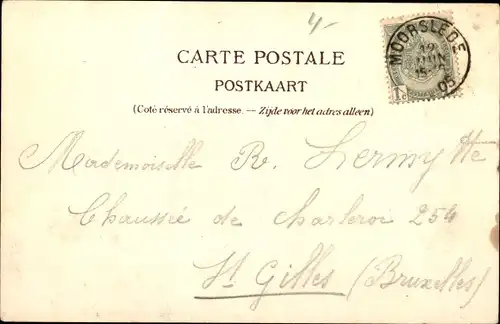 4-
MOORSLEDE
12
JUIN
05
CARTE POSTALE
POSTKAART
(Coté réservé à l'adresse. — Zijde voor het adres alleen)
Mademoiselle R. Lermytte
Chaussée de Charleroi 254
St Gilles (Bruxelles)